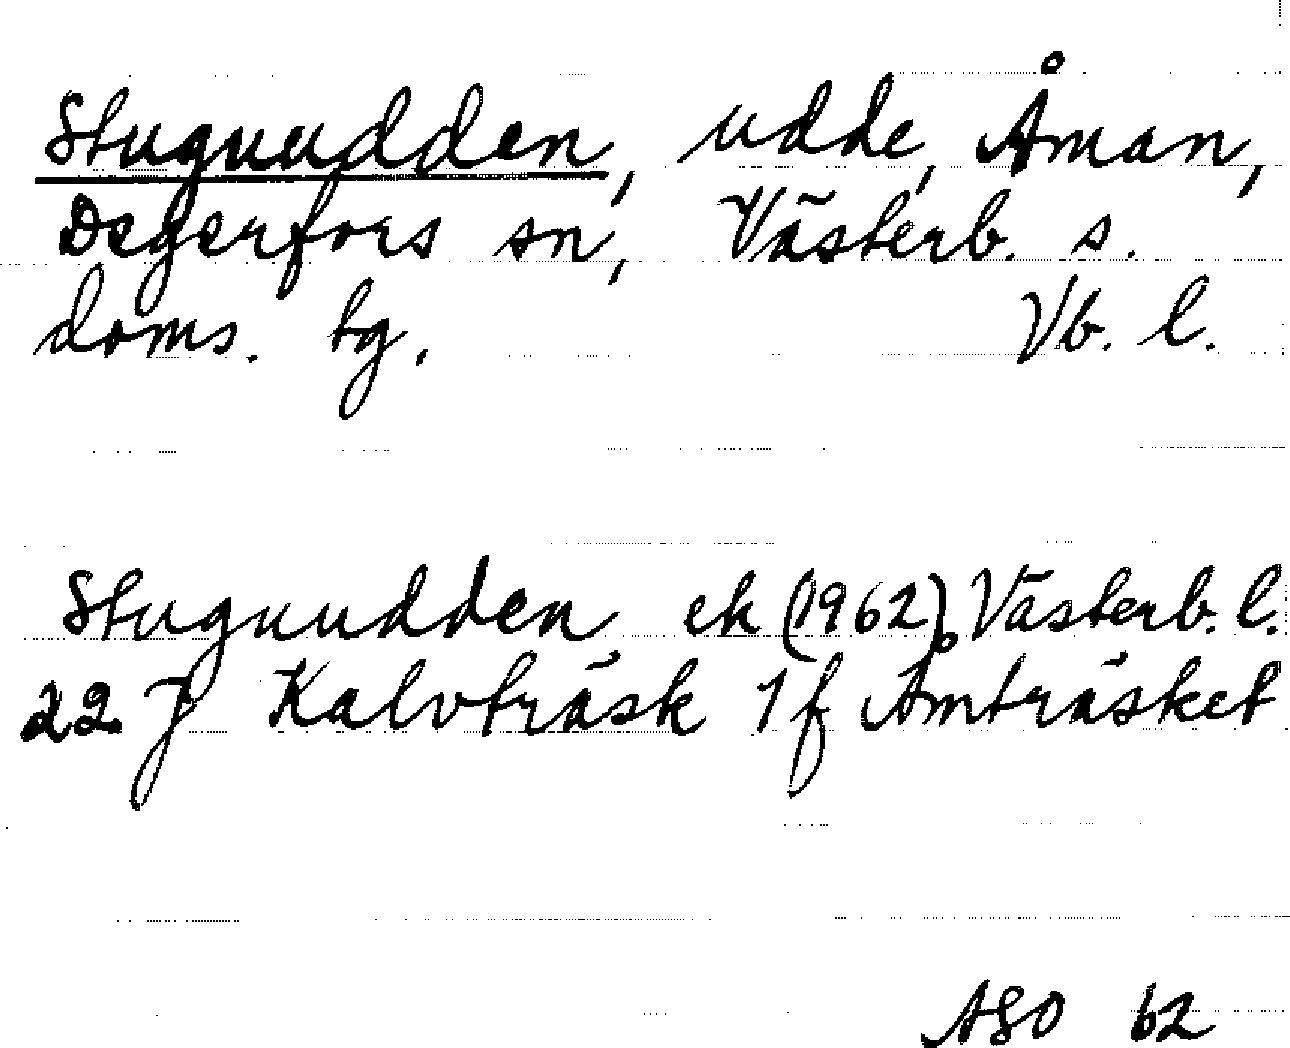 Stugnudden, udde, Åman,
Degerfors sn, Västerb. s.
doms. tg. Vb. l.
Stugnudden ek (1962) Västerb. l.
22 J Kalvträsk 1 f Åmträsket
ASO 62